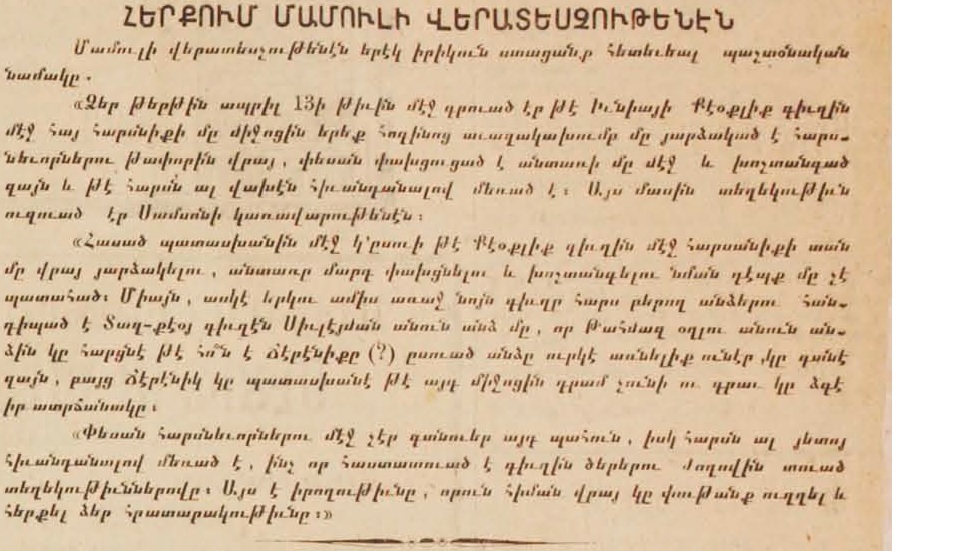 ՀԵՐՔՈՒՄ ՄԱՄՈՒԼԻ ՎԵՐԱՏԵՍՉՈՒԹԵՆԷՆ
Մամուլի վերատեսչութենէն երէկ իրիկուն ստացանք հետեւեալ պաշտօնական
նամակը.
«Ձեր թերթին ապրիլ 13ի թիւին մէջ գրուած էր թէ Իւնիայի Քէօքլիք գիւղին
մէջ հայ հարսնիքի մը միջոցին երեք հոգինոց աւազակախումբ մը յարձակած է հարս-
նեւորներու թափօրին վրայ, փեսան փախցուցած է անտառի մը մէջ և խոշտանգած
զայն և թէ հարսն ալ վախէն հիւանդանալով մեռած է։ Այս մասին տեղեկութիւն
ուզուած էր Սամսոնի կառավարութենէն։
«Հասած պատասխանին մէջ կ'ըսուի թէ Քէօքլիք գիւղին մէջ հարսանիքի տան
մը վրայ յարձակելու, անտառը մարդ փախցնելու և խոշտանգելու նման դէպք մը չէ
պատահած։ Միայն, ասկէ երկու ամիս առաջ նոյն գիւղը հարս բերող անձերու հան-
դիպած է Տաղ-քէօյ գիւղէն Սիւլէյման անուն անձ մը, որ Թահմազ օղլու անուն ան-
ձին կը հարցնէ թէ հո՞ն է Ճէրէնիքը (?) ըսուած անձը ուրկէ առնելիք ունէր, կը գտնէ
զայն, բայց Ճէրէնիկ կը պատասխանէ թէ այդ միջոցին դրամ չունի ու գրաւ կը ձգէ
իր ատրճանակը։
«Փեսան հարսնեւորներու մէջ չէր գտնուեր այդ պահուն, իսկ հարսն ալ յետոյ
հիւանդանալով մեռած է, ինչ որ հաստատուած է գիւղին ծերերու ժողովին տուած
տեղեկութիւններովը։ Այս է իրողութիւնը, որուն հիման վրայ կը փութանք ուղղել և
հերքել ձեր հրատարակութիւնը։»